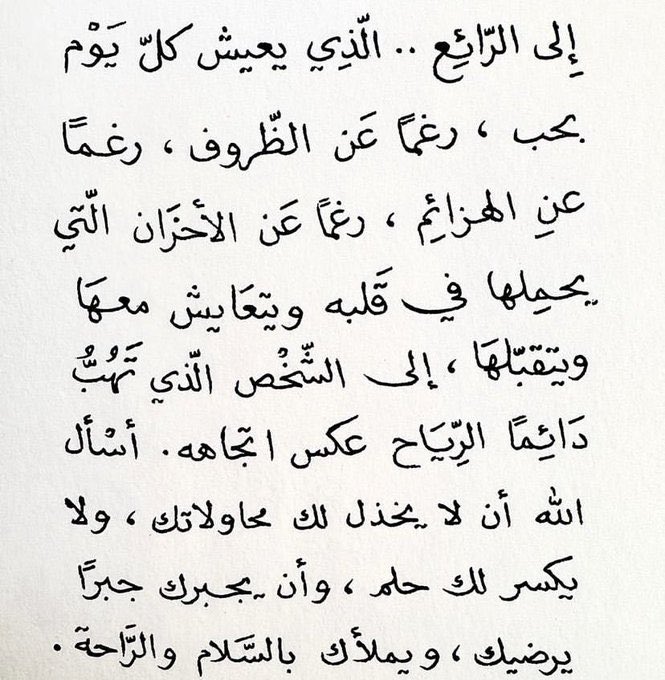 إِلى الرّائِع .. الّذِي يعيش كلّ يَوْم
بحب ، رغمًا عَن الظّروف ، رغمًا
عنِ الهزائِمِ ، رغمًا عَن الأحزَان الّتي
يحمِلها في قَلبه ويتعَايش معهَا
ويتقبّلهَا ، إلى الشّخْص الّذي تَهُبُّ
دَائِمًا الرِّيَاح عكس اتجاهه . أسْأل
الله أن لا يخذل لك محاولاتك ، ولا
يكسر لك حلم ، وأن يجبرك جبرًا
يرضيك ، ويملأك بالسَّلام والرَّاحة .